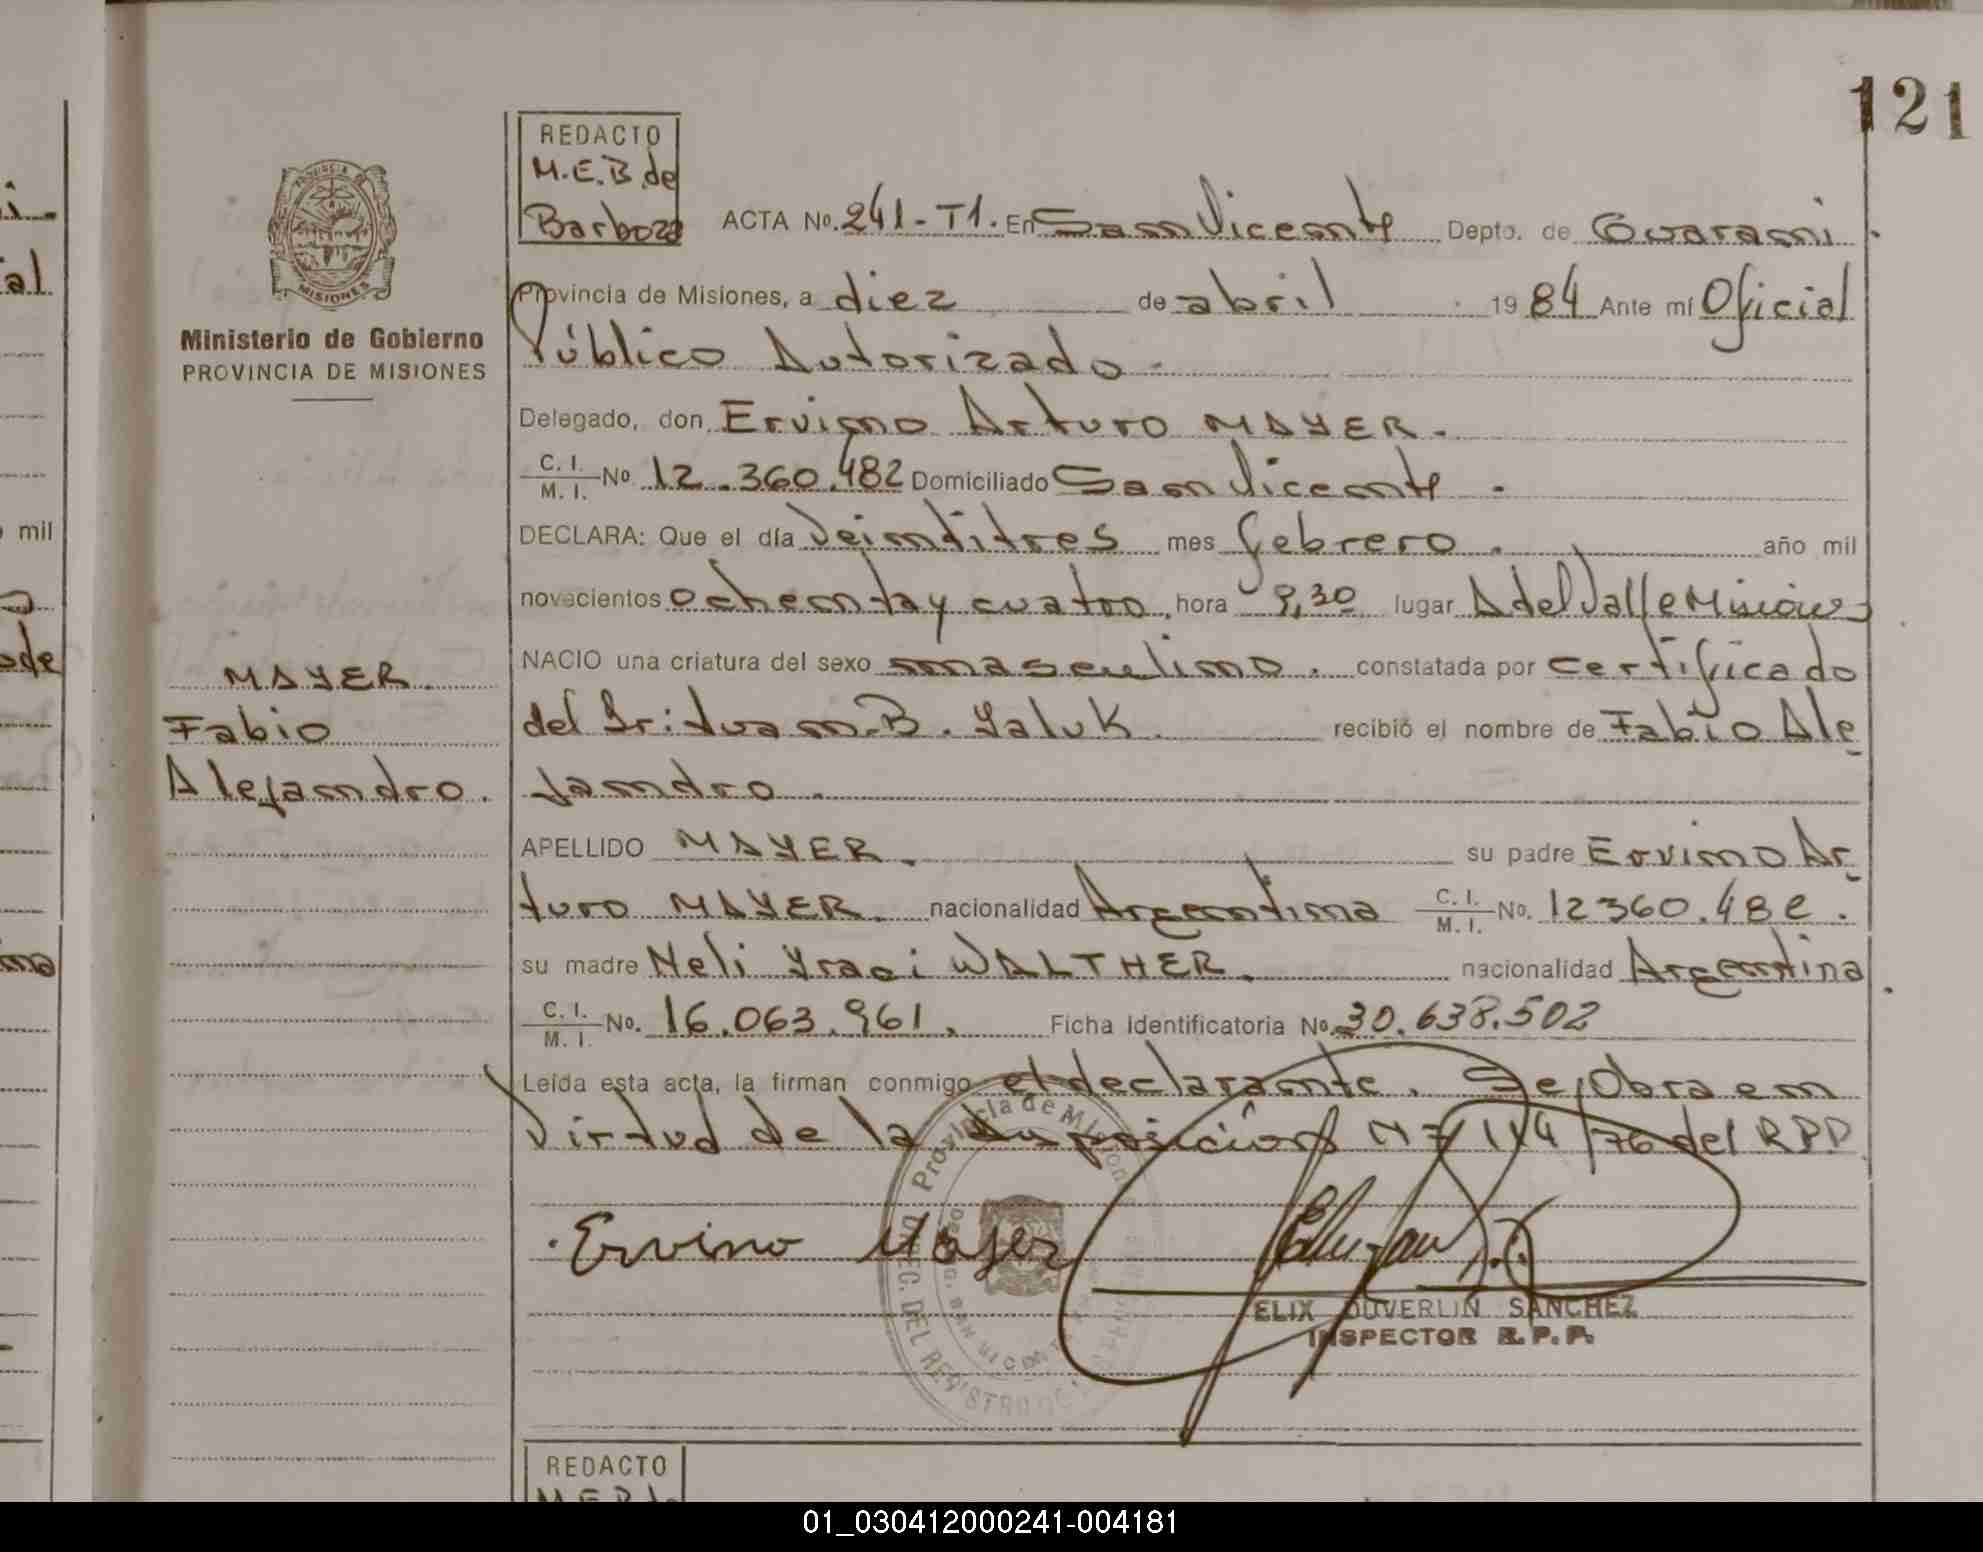 121
REDACTO
M.E.B. de
Barboza
ACTA No. 241-T1. En San Vicente Depto. de Guarani
Provincia de Misiones, a diez de abril 1984 Ante mí Oficial
Público Autorizado.
Ministerio de Gobierno
PROVINCIA DE MISIONES
Delegado, don Ervino Arturo MAYER.
C. I.
M. I. No 12.360.482 Domiciliado San Vicente.
DECLARA: Que el día Veintitres mes febrero. año mil
novecientos ochenta y cuatro, hora 9,30 lugar A del Valle Misiones
NACIO una criatura del sexo masculino. constatada por certificado
MAYER
Fabio
Alejandro.
del B. Yaluk. recibió el nombre de Fabio Ale
jandro.
APELLIDO MAYER. su padre Ervino Ar
turo MAYER. nacionalidad Argentina C. I.
M. I. No. 12360.482.
su madre Neli Yraci WALTHER. nacionalidad Argentina
C. I.
M. I. No. 16.063.961. Ficha Identificatoria No. 30.638.502
Leída esta acta, la firman conmigo el declarante. Se Obra en
Virtud de la Disposición Nº 114/76 del RPP
Ervino Mayer
Provincia de Misiones
DIREC. DEL REGISTRO
ELIX DUVERLIN SANCHEZ
INSPECTOR R.P.P.
REDACTO
01_030412000241-004181